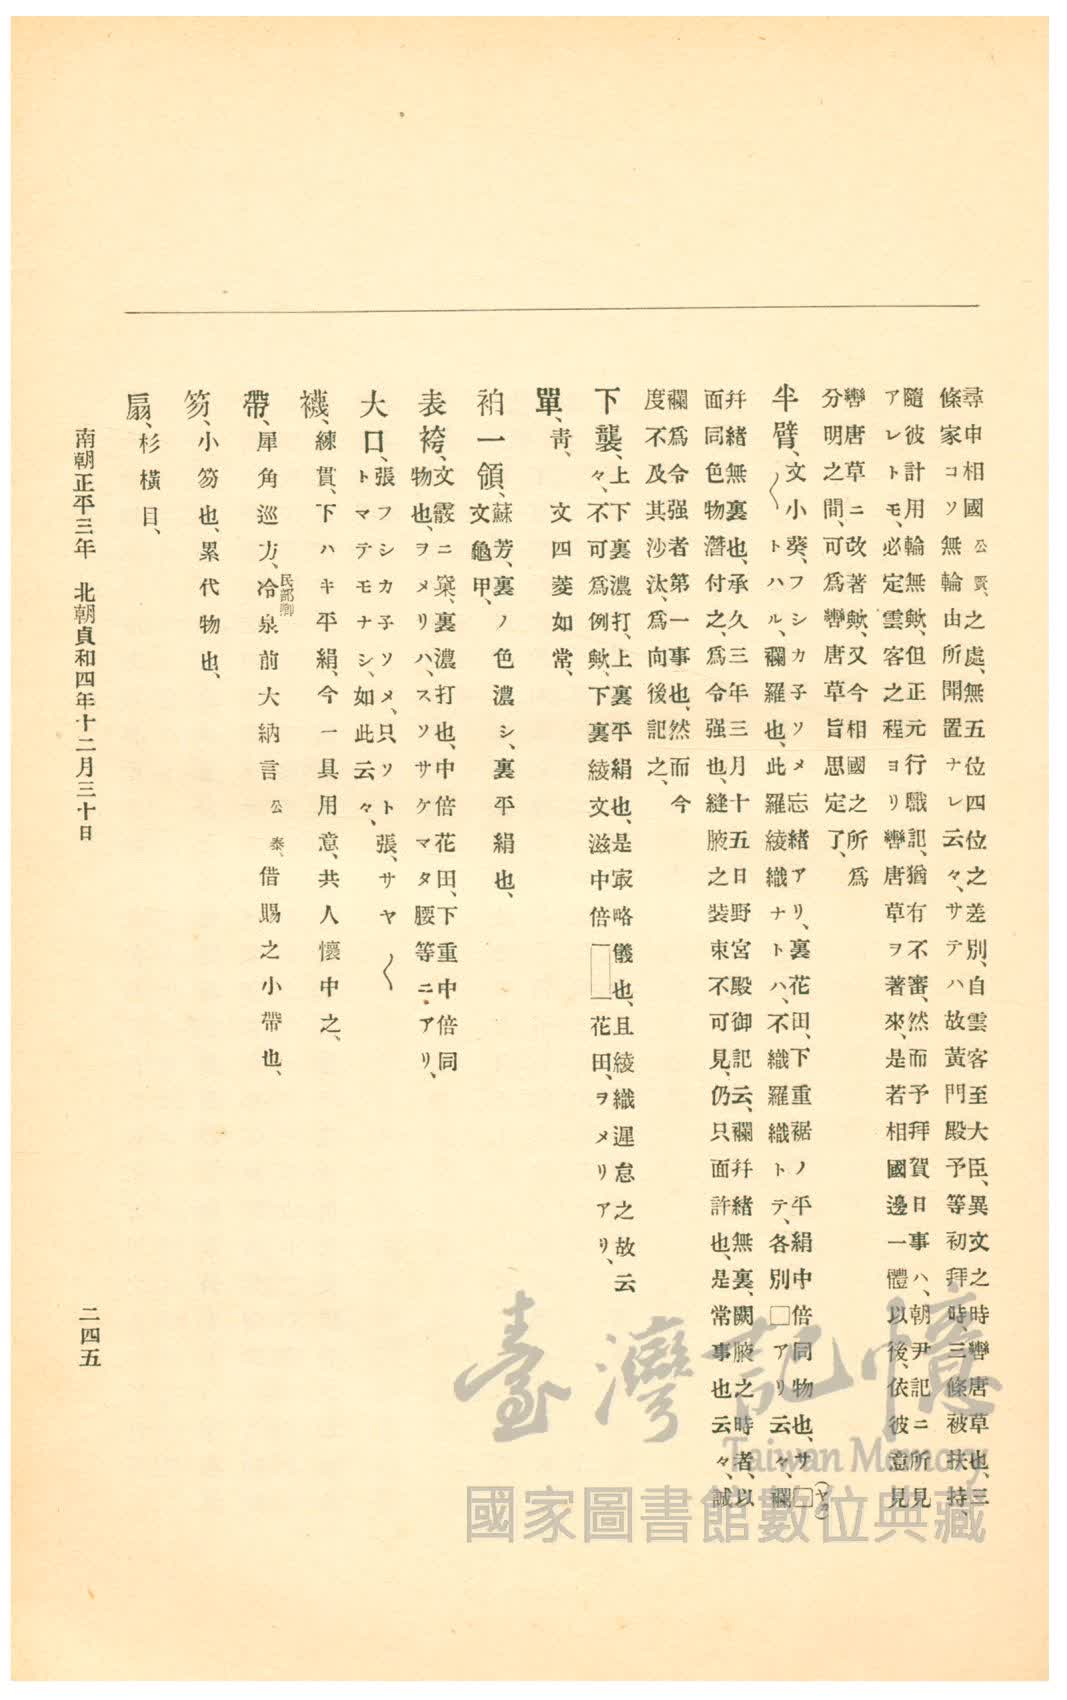 尋申相國公賢、之處、無五位四位之差別、自雲客至大臣、異文之時轡唐草也、三
條家コソ無輪由所聞置ナレ云々、サテハ故黃門殿予等初拜時、三條被扶持、
隨彼計用輪無歟、但正元行職記、猶有不審、然而予拜賀日事ハ、朝尹記ニ所見
アレトモ、必定雲客之程ヨリ轡唐草ヲ著來、是若相國邊一體以後、依彼意見
轡唐草ニ改著歟、又今相國之所爲
分明之間、可爲轡唐草旨思定了、
半臂、文小葵、フシカ子ソメ忘緖アリ、裏花田、下重裾ノ平絹中倍同物也、サ□(ヤウ)
〱トハル、襴羅也、此羅綾織ナトハ、不織羅織トテ、各別□アリ云々、襴
幷緖無裏也、承久三年三月十五日野宮殿御記云、襴幷緖無裏、闕腋之時者、以
面同色物潛付之、爲令强也、縫腋之裝束不可見、仍只面許也、是常事也云々、誠
襴爲令强者第一事也、然而今
度不及其沙汰、爲向後記之、
下襲、上下裏濃打、上裏平絹也、是㝡略儀也、且綾織遲怠之故云
々、不可爲例歟、下裏綾文滋中倍□一花田、ヲメリアリ、
單、靑、文四菱如常、
袙一領、蘇芳、裏ノ色濃シ、裏平絹也、
文龜甲、
表袴、文霰ニ窠、裏濃打也、中倍花田、下重中倍同
物也、ヲメリハ、スソサケマタ腰等ニアリ、
大口、張フシカ子ソメ、只ソト張、サヤ〱
トマテモナシ、如此云々、
襪、練貫、下ハキ平絹、今一具用意、共人懷中之、
帶、犀角巡方、冷泉前大納言公泰、借賜之小帶也、
民部卿
笏、小笏也、累代物也、
扇、杉橫目、
南朝正平三年 北朝貞和四年十二月三十日
二四五
臺灣記憶
Taiwan Memory
國家圖書館數位典藏